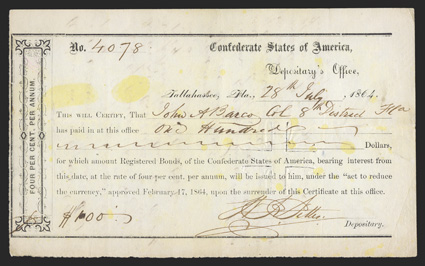 No. 4078 Confederate States of America,
Depositary's Office,
Tallahassee, Fla., 28th July, 1864.
THIS WILL CERTIFY, That John A Barco, Col 8th District Fla
has paid in at this office One Hundred
Dollars,
for which amount Registered Bonds, of the Confederate States of America, bearing interest from
this date, at the rate of four per cent. per annum, will be issued to him, under the "act to reduce
the currency," approved February 17, 1864, upon the surrender of this Certificate at this office.
$100
Depositary.
FOUR PER CENT. PER ANNUM.